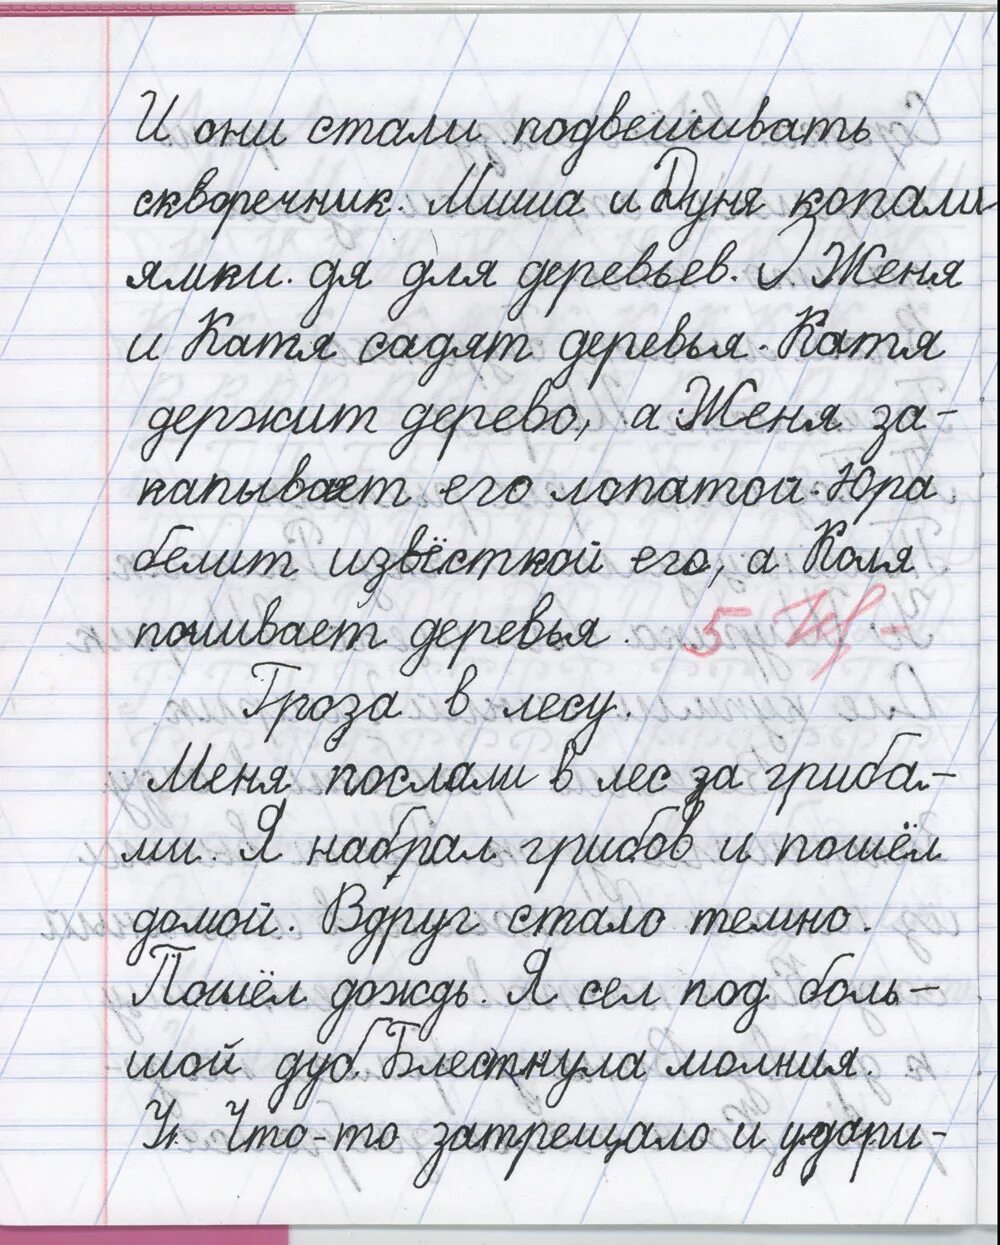 И они стали подвешивать
скворечник. Миша и Дуня копали
ямки. дя для деревьев. Женя
и Катя садят деревья. Катя
держит дерево, а Женя за-
капывает его лопатой. Юра
белит извёсткой его, а Коля
поливает деревья.
5
Гроза в лесу.
Меня послали в лес за гриба-
ми. Я набрал грибов и пошёл
домой. Вдруг стало темно.
Пошёл дождь. Я сел под боль-
шой дуб. Блестнула молния.
Что-то затрещало и удари-